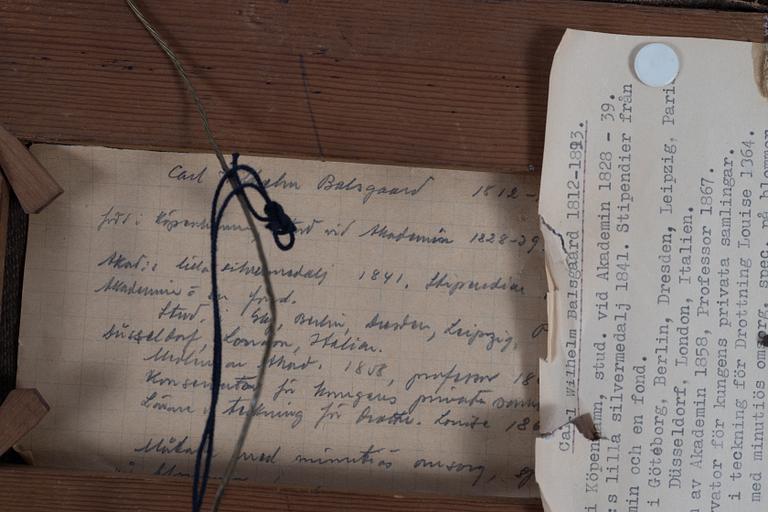 Carl Wilhelm Balsgaard 1812-
född i Köpenhamn, stud vid Akademin 1828-39
Akad:s lilla silvermedalj 1841. Stipendier
Akademin o en fond.
Stud. i Gbg, Berlin, Dresden, Leipzig, P
Düsseldorf, London, Italien.
Medlem av Akad. 1858, professor 18
Konservator för kungens privata saml
Lärare i teckning för Drottn. Louise 186
Målade med minutiös omsorg,
Carl Wilhelm Balsgaard 1812-1893.
i Köpenhamn, stud. vid Akademin 1828 - 39.
:s lilla silvermedalj 1841. Stipendier från
min och en fond.
i Göteborg, Berlin, Dresden, Leipzig, Pari
Düsseldorf, London, Italien.
av Akademin 1858, Professor 1867.
vator för kungens privata samlingar.
i teckning för Drottning Louise 1964.
med minutiös omsorg, spec. på blommor